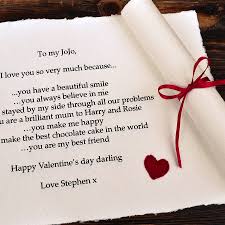 To my JoJo,
I love you so very much because...
...you have a beautiful smile
...you always believe in me
stayed by my side through all our problems
are a brilliant mum to Harry and Rosie
...you make me happy
make the best chocolate cake in the world
...you are my best friend
Happy Valentine's day darling
Love Stephen x